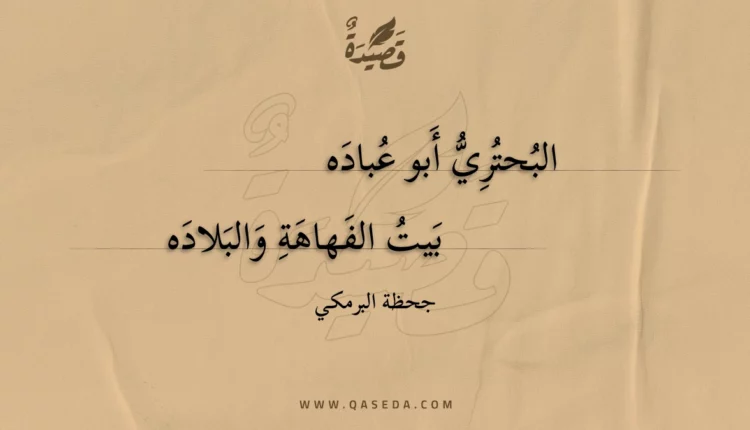 قَصِيْدَةٌ
البُحتُرِيُّ أَبو عُبادَه
بَيتُ الفَهاهَةِ وَالبَلادَه
جحظة البرمكي
WWW.QASEDA.COM